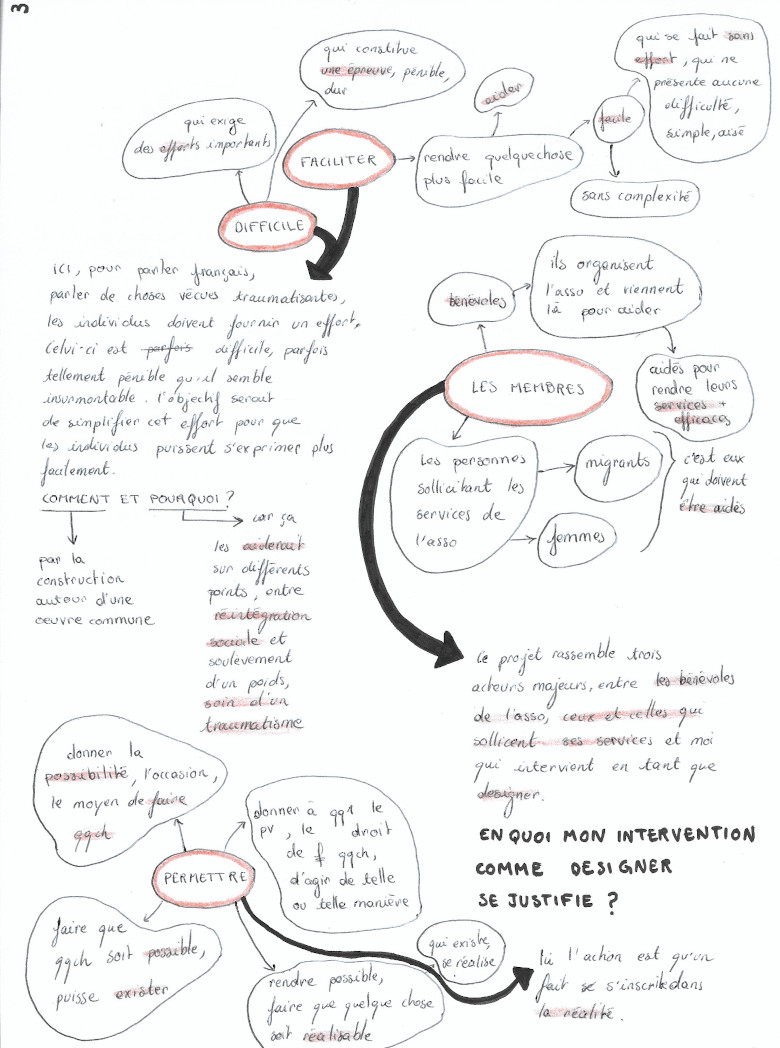 3
qui constitue
une épreuve, pénible,
dur
qui exige
des efforts importants
FACILITER
DIFFICILE
rendre quelquechose
plus facile
aider
facile
qui se fait sans
effort, qui ne
présente aucune
difficulté,
simple, aisé
sans complexité
ICI, pour parler français,
parler de choses vécues traumatisantes,
les individus doivent fournir un effort,
Celui-ci est parfois difficile, parfois
tellement pénible qu'il semble
insurmontable. l'objectif serait
de simplifier cet effort pour que
les individus puissent s'exprimer plus
facilement.
COMMENT ET POURQUOI ?
par la
construction
autour d'une
oeuvre commune
car ça
les aiderait
sur différents
points, entre
réintégration
sociale et
soulèvement
d'un poids,
soin d'un
traumatisme
LES MEMBRES
bénévoles
ils organisent
l'asso et viennent
là pour aider
aidés pour
rendre leurs
services +
efficaces
Les personnes
sollicitant les
services de
l'asso
migrants
femmes
c'est eux
qui doivent
être aidés
Ce projet rassemble trois
acteurs majeurs, entre les bénévoles
de l'asso, ceux et celles qui
sollicent ses services et moi
qui intervient en tant que
designer.
EN QUOI MON INTERVENTION
COMME DESIGNER
SE JUSTIFIE ?
PERMETTRE
donner la
possibilité, l'occasion,
le moyen de faire
qqch
donner à qq1 le
pv, le droit
de f qqch,
d'agir de telle
ou telle manière
faire que
qqch soit possible,
puisse exister
rendre possible,
faire que quelque chose
soit réalisable
qui existe,
se réalise
Ici l'action est qu'un
fait se s'inscrit dans
la réalité.